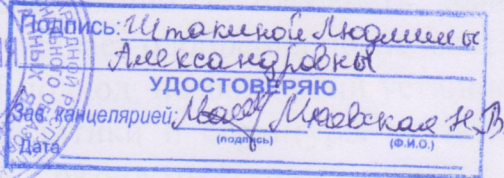 Подпись: Штакиной Людмилы
Александровны
УДОСТОВЕРЯЮ
Зав. канцелярией: Маевская Н.В
(подпись) (Ф.И.О.)
Дата